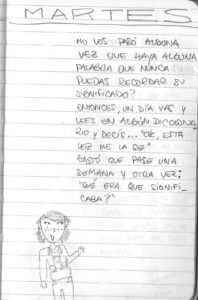 MARTES
NO LES PASÓ ALGUNA
VEZ QUE HAYA ALGUNA
PALABRA QUE NUNCA
PUEDAS RECORDAR SU
SIGNIFICADO?
ENTONCES, UN DÍA VAS Y
LEES EN ALGÚN DICCIONA
RIO Y DECÍS... "OK, ESTA
VEZ ME LA SÉ"
BASTÓ QUE PASE UNA
SEMANA Y OTRA VEZ:
"QUÉ ERA QUE SIGNIFI-
CABA?"